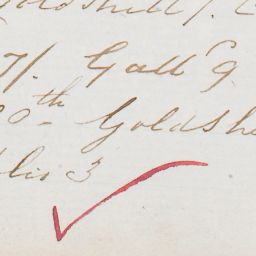 Goldshill
71. Gall 9
0th Goldshe
lis 3